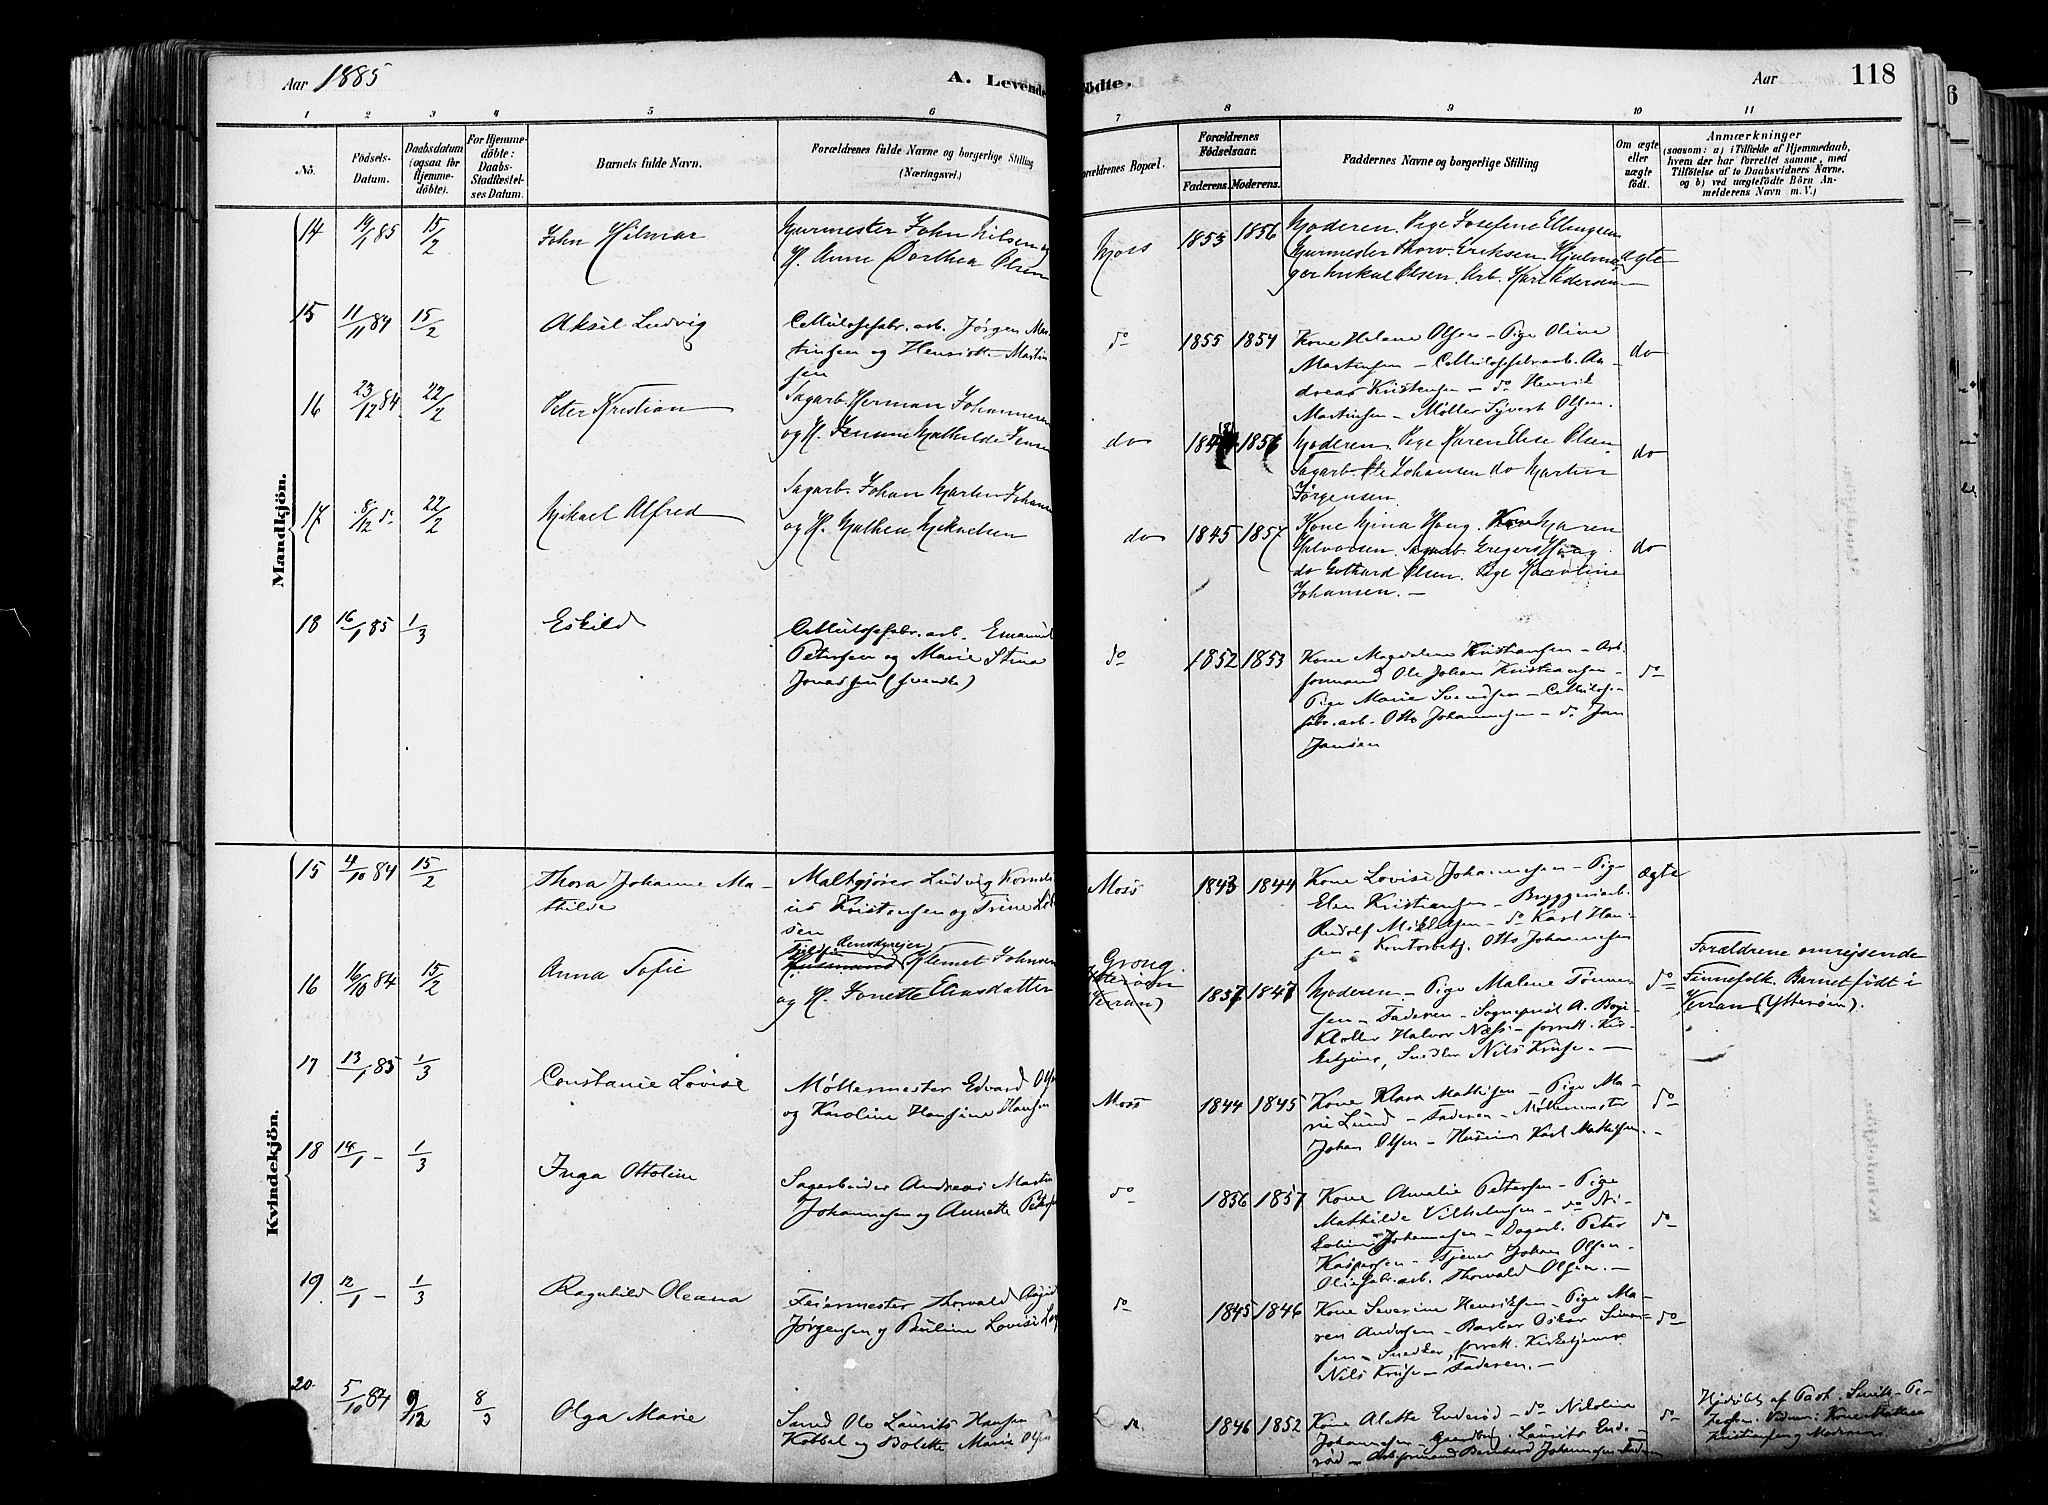 Aar 1885
A. Levendefödte.
Aar
118
1 2 3 4 5 6 7 8 9 10 11
No.
Födsels-Datum.
Daabsdatum (ogsaa for Hjemmedöbte).
For Hjemmedöbte: Daabs-Stadfæstelses Datum.
Barnets fulde Navn.
Forældrenes fulde Navne og borgerlige Stilling (Næringsvei.)
Forældrenes Bopæl.
Forældrenes Födselsaar.
Faderens. Moderens.
Faddernes Navne og borgerlige Stilling
Om ægte eller uægte födt.
Anmærkninger
(saasom: a) i Tilfælde af Hjemmedaab, hvem der har forrettet samme, med Tilföielse af to Daabsvidners Navne, og b) ved uægtefödte Börn Anmelderens Navn m. V.)
Mandkjön.
14 19/1 85 15/2 John Hilmar
Murmester John Nilsen og
H. Anne Dorthea Olsen
Moss 1853 1856
Moderen. Pige Josefine Ellingsen
Murmester Thorv. Eriksen.
Olsen. Arb. Karl Pedersen
ægte
15 11/11 84 15/2 Aksel Ludvig
Cellulosefabr. arb. Jørgen Mar-
tinsen og Henriette Martin
sen
do 1855 1854
Kone Helene Olsen – Pige Oline
Martinsen – Cellulosefabr. arb. An-
dreas Kristensen – do Henrik
Martinsen – Møller Syvert Olsen.
do
16 23/12 84 22/2 Peter Kristian
Sagarb. Herman Johannesen
og H. Mathilde Jensen
do 1856
Moderen. Pige Karen Elise Olsen
Sagarb. Ole Johansen do Martin
Jørgensen
do
17 8/12 do 22/2 Mikael Alfred
Sagarb. Johan Martin Johans
og H. Mathea Mikaelsen
do 1845 1857
Kone Mina Haug. Kone Maren
Halvorsen. Sagarb. Gregers Haug.
do Gothard Olsen. Pige Karoline
Johansen. –
do
18 16/1 85 1/3 Eskild
Cellulosefabr. arb. Emanuel
Petersen og Marie Stina
Jonassen (svenske)
do 1852 1853
Kone Magdalene Kristiansen – Arb.
formand Ole Johan Kristiansen –
Pige Marie Svendsen – Cellulose-
fabr. arb. Otto Johannesen – do Jan
Jansen
do
Kvindekjön.
15 4/10 84 15/2 Thora Johanne Ma-
thilde
Maltgjører Ludvig Korneli-
us Kristensen og Trine
sen
Moss 1843 1844
Kone Lovise Johannesen – Pige
Elen Kristiansen – Bryggeriarb.
Rudolf Mikkelsen – do Karl Han-
sen – Kontorbetj. Otto Johannesen
ægte
16 16/10 84 15/2 Anna Sofie
Rensdyreier
Klemet Johnsen
og H. Jonette Eliasdatter
Grong.
Ytterøen
(Verran)
1837 1847
Moderen – Pige Malene Tønne-
sen – Faderen – Sogneprest A. Bøje
Kloller Halvor Næss – forrett. Kir-
ketjener, Snedker Nils Kruse. –
do
Forældrene omreisende
Finnefolk. Barnet født i
Verran (Ytterøen).
17 13/1 85 1/3 Constanse Lovise
Møllermester Edvard Olsen
og Karoline Hansine Hansen
Moss 1844 1845
Kone Klara Mathisen – Pige Ma-
rie Lund – Faderen – Møllermester
Johan Olsen – Karl Mathisen. –
do
18 14/1 – 1/3 Inga Ottoline
Sagarbeider Andreas Martin
Johannesen og Annette Peters
do 1856 1857
Kone Amalie Petersen – Pige
Mathilde Vilhelmsen – do Ni-
koline Johannesen – Dagarb. Peter
Kaspersen – Tjener Johan Olsen –
Oliefabr. arb. Thorvald Olsen. –
do
19. 12/1 – 1/3 Ragnhild Oleana
Feiermester Thorvald August
Jørgensen og Pauline Lovise
do 1845 1846
Kone Severine Henriksen – Pige Ma-
ren Andersen – Barber Oskar Simon-
sen – Snedker, forrett. Kirketjener
Nils Kruse – Faderen. –
do
20. 5/10 84 9/12 8/3 Olga Marie
Smed Ole Laurits Hansen
Kobbel og Bolette Marie Olsen
do 1846 1852
Kone Alette Enderød – do Nikoline
Johannesen – Gaardbr. Laurits Ende-
rød – Arb. formand Bernhard Johannesen – Faderen
do
Hjdøbt af Past. Smith-Pe-
tersen. Vidner: Kone Mathea
Kristiansen og Moderen